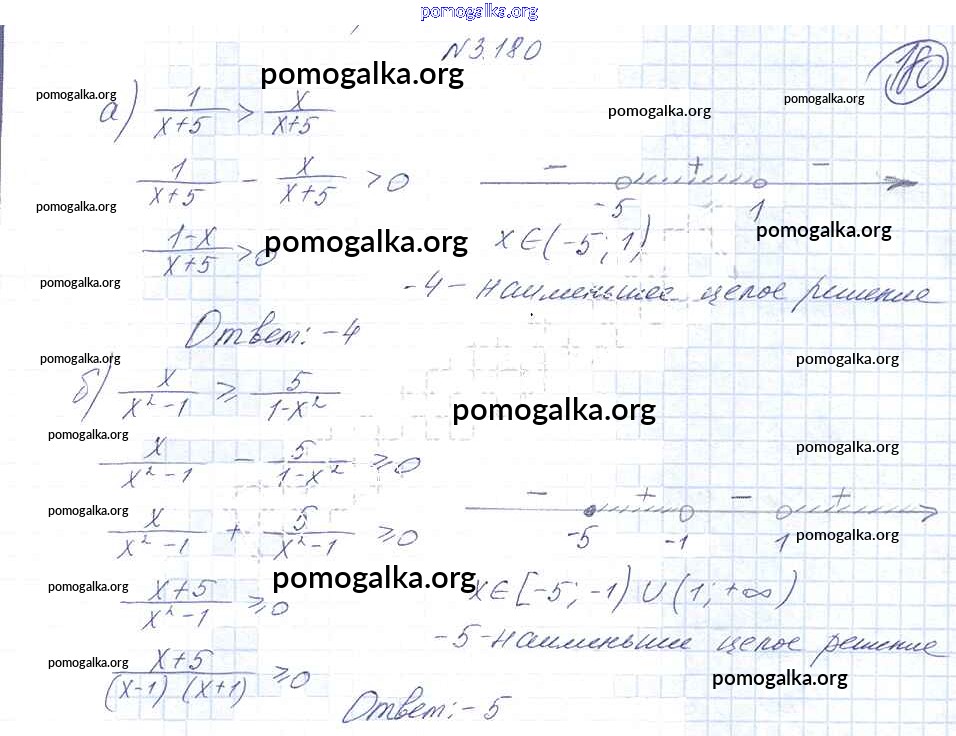 pomogalka.org
N3.180
180
pomogalka.org
pomogalka.org
pomogalka.org
pomogalka.org
а) 1/(x+5) > x/(x+5)
1/(x+5) - x/(x+5) > 0
- + -
-5 1
pomogalka.org
(1-x)/(x+5) > 0
pomogalka.org
x ∈ (-5; 1)
pomogalka.org
pomogalka.org
-4 - наименьшее целое решение
Ответ: -4
pomogalka.org
pomogalka.org
б) x/(x²-1) ≥ 5/(1-x²)
pomogalka.org
pomogalka.org
pomogalka.org
x/(x²-1) - 5/(1-x²) ≥ 0
pomogalka.org
- + - +
-5 -1 1
x/(x²-1) + 5/(x²-1) ≥ 0
pomogalka.org
pomogalka.org
pomogalka.org
(x+5)/(x²-1) ≥ 0
x ∈ [-5; -1) ∪ (1; +∞)
-5 - наименьшие целое решение
pomogalka.org
pomogalka.org
(x+5)/((x-1) (x+1)) ≥ 0
Ответ: -5